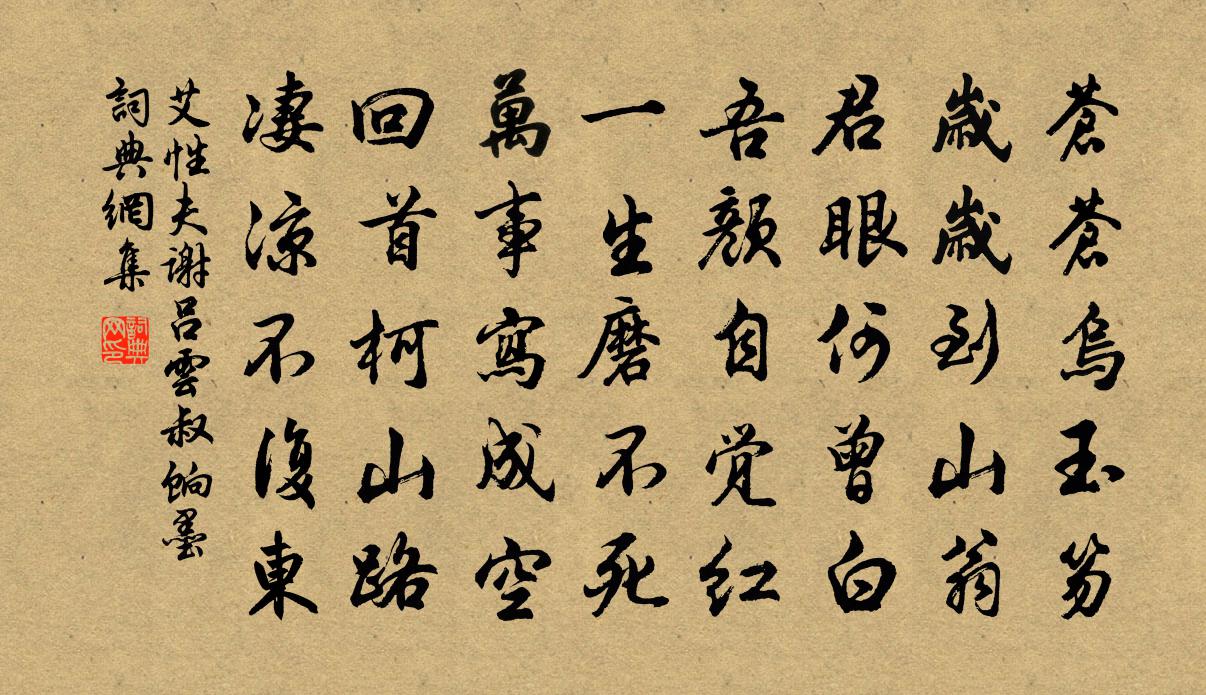 蒼蒼烏玉笏
歲歲到山翁
君眼何曾白
吾顏自覺紅
一生磨不死
萬事寫成空
回首柯山路
淒涼不復東
艾性夫謝呂雲叔餉墨
詞典網集
詞典網印